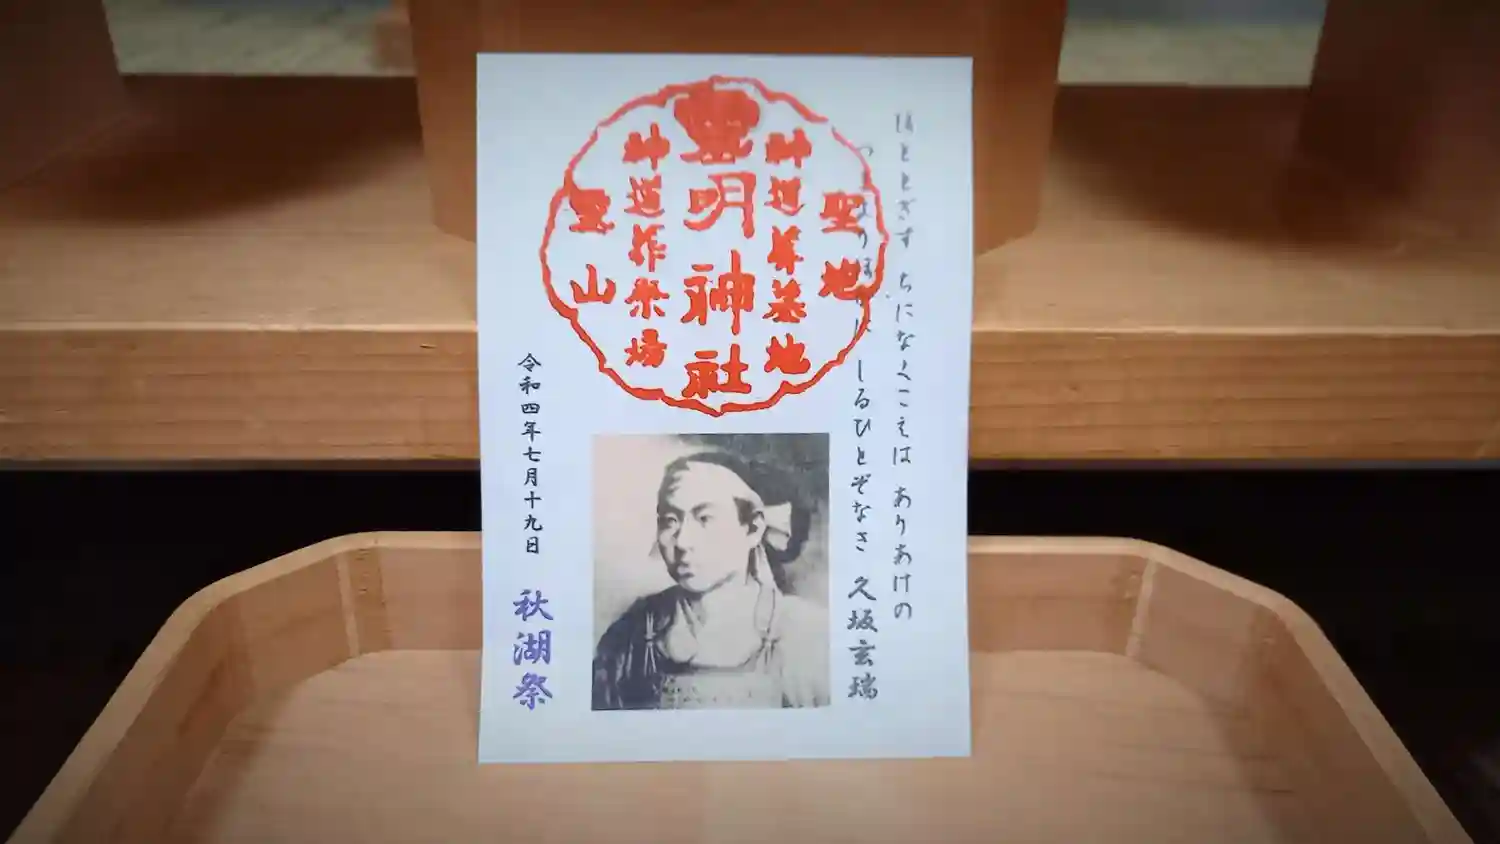 ほととぎす ちになくこえは ありあけの
つきよりほかに しるひとぞなき 久坂玄瑞
聖地
神道葬墓地
霊明神社
神道葬祭場
霊山
令和四年七月十九日
秋湖祭